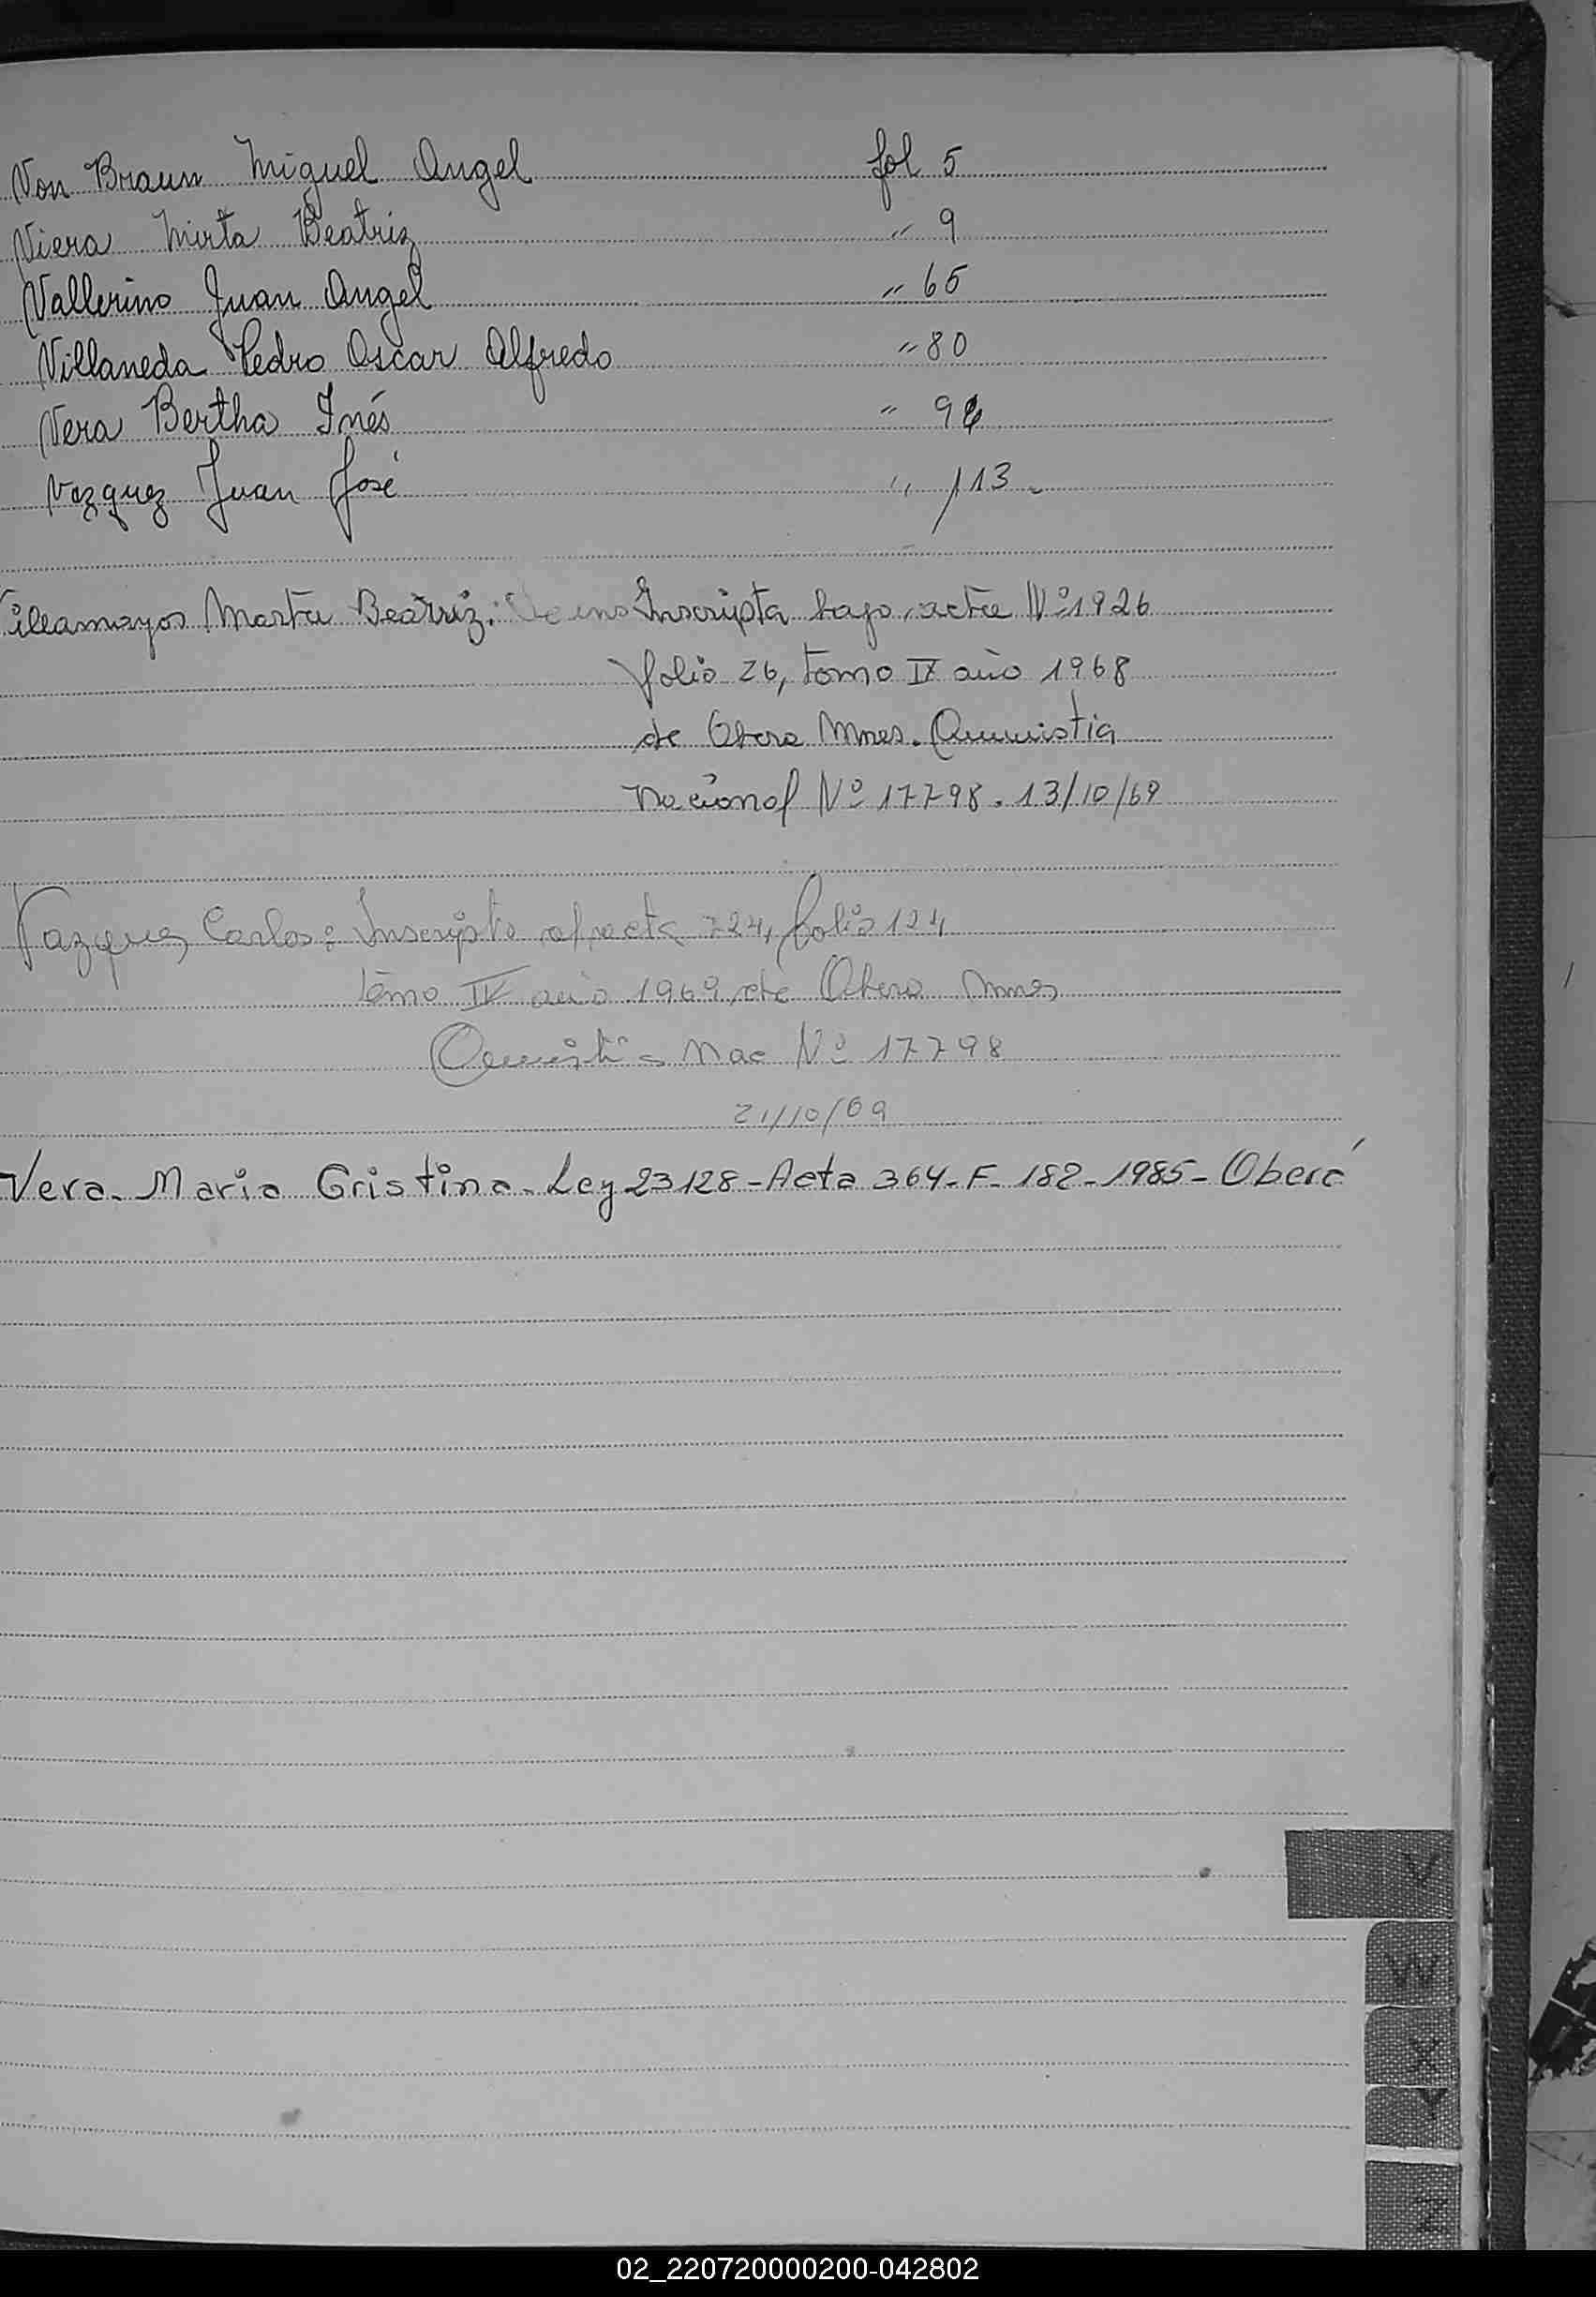 Von Braun Miguel Angel fol 5
Viera Mirta Beatriz " 9
Vallerino Juan Angel " 65
Villaneda Pedro Oscar Alfredo " 80
Vera Bertha Inés " 9
Vazquez Juan José " 113-
illamayos Marta Beatriz: Inscripta bajo acta Nº 1926
folio 26, tomo año 1968
de Obera Mnes. Amnistia
Nacional Nº 17798. 13/10/69
Vazquez Carlos: Inscripto al acta 724, folio 124
tomo IV año 1969 de Obera Mnes
Amnistia Nac Nº 17798
21/10/69
Vera Maria Cristina - Ley 23128 - Acta 364 - F - 182 - 1985 - Oberá
V
W
X
Y
Z
02_220720000200-042802